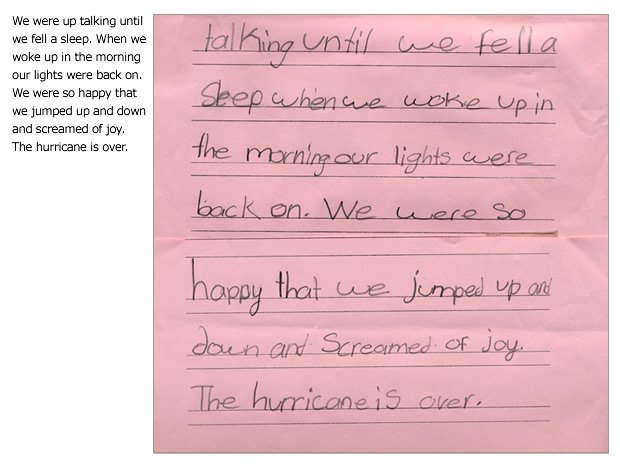 We were up talking until
we fell a sleep. When we
woke up in the morning
our lights were back on.
We were so happy that
we jumped up and down
and screamed of joy.
The hurricane is over.
talking until we fell a
sleep when we woke up in
the morning our lights were
back on. We were so
happy that we jumped up and
down and screamed of joy.
The hurricane is over.